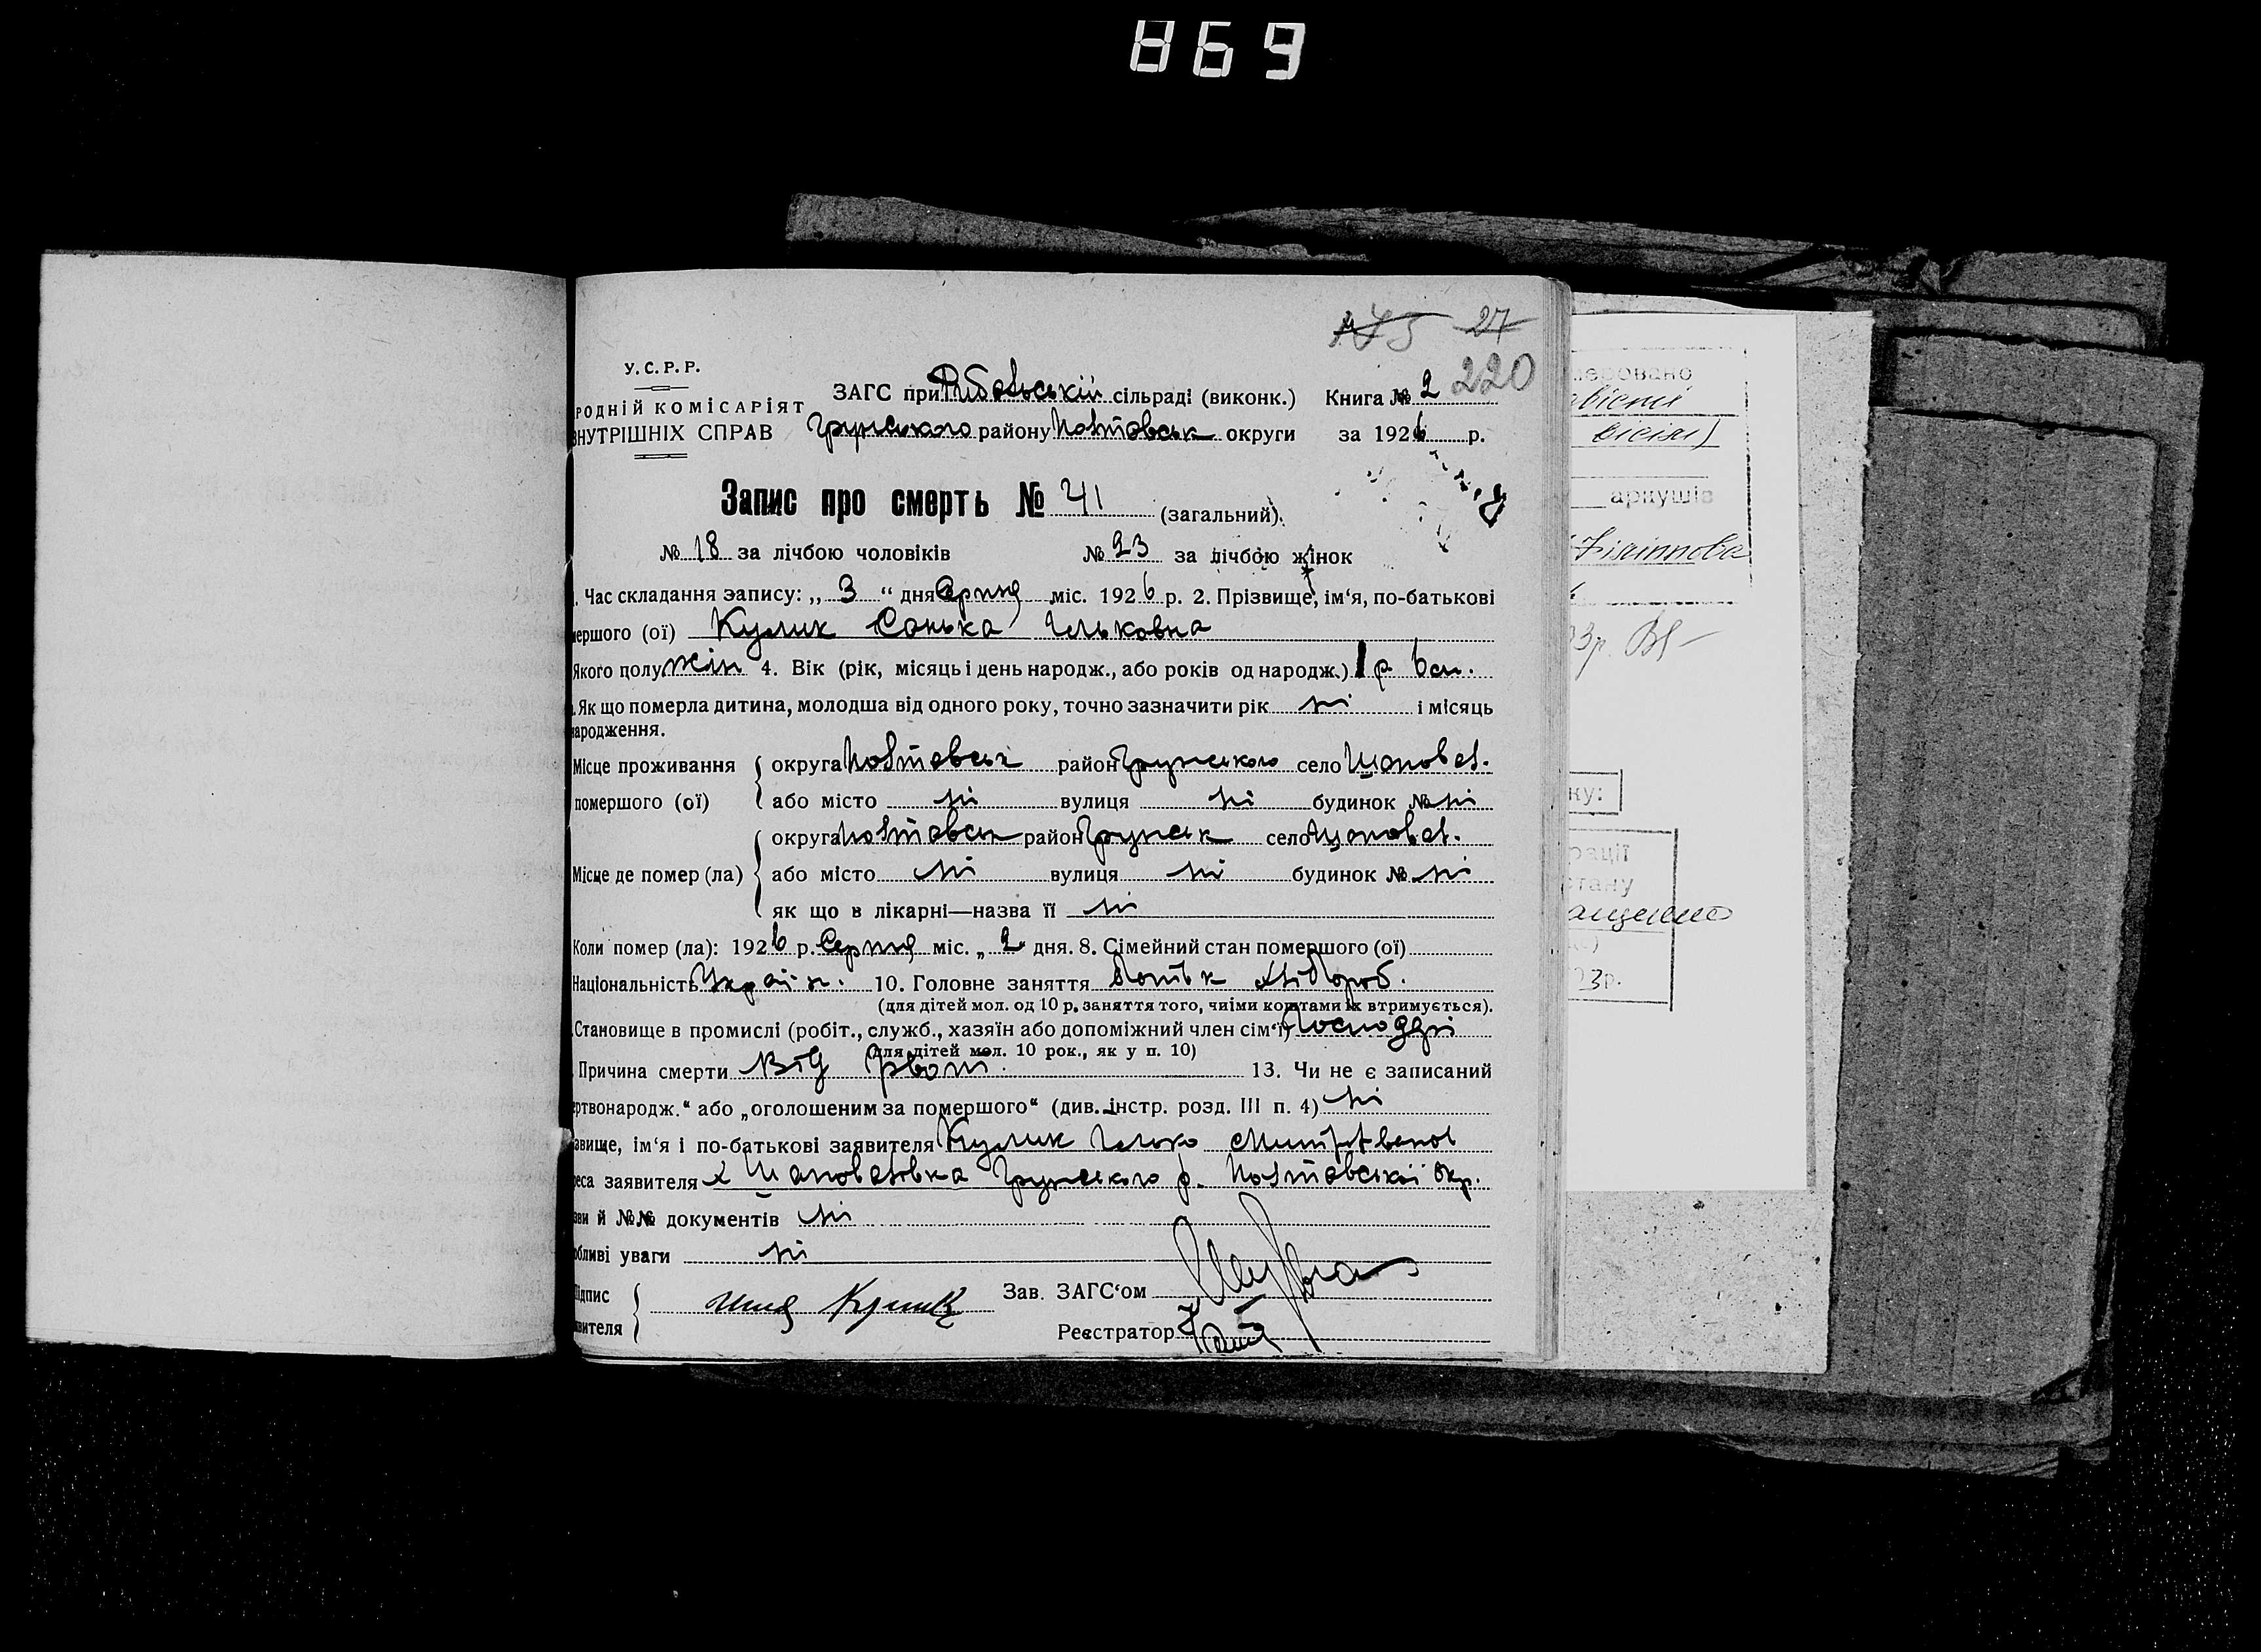 869
175 27
220
У. С. Р. Р.
РОДНІЙ КОМІСАРІЯТ
ВНУТРІШНІХ СПРАВ
ЗАГС при сільраді (виконк.) Книга № 2
Грунського району Полтавськ округи за 1926 р.
Запис про смерть № 41 (загальний).
№ 18 за лічбою чоловіків № 23 за лічбою жінок
. Час складання запису: „ 3 “ дня Серпня міс. 1926 р. 2. Прізвище, ім‘я, по-батькові
мершого (ої) Кулик Санька Ільковна
Якого полу жін 4. Вік (рік, місяць і день народж., або років од народж.) 1 р 6 м.
. Як що померла дитина, молодша від одного року, точно зазначити рік ні і місяць
народження.
Місце проживання
помершого (ої)
округа Полтавськ район Грунського село Шаповал.
або місто ні вулиця ні будинок № ні
Місце де помер (ла)
округа Полтавськ район Грунськ село Шаповал.
або місто ні вулиця ні будинок № ні
як що в лікарні—назва її ні
Коли помер (ла): 1926 р. Серпня міс. „ 2 дня. 8. Сімейний стан помершого (ої)
Національність Україн. 10. Головне заняття Хлібороб.
(для дітей мол. од 10 р. заняття того, чиїми коштами їх втримується).
. Становище в промислі (робіт., служб., хазяїн або допоміжний член сім‘ї)
(для дітей мол. 10 рок., як у п. 10)
. Причина смерти Від рвоти. 13. Чи не є записаний
ертвонародж.“ або „оголошеним за помершого“ (див. інстр. розд. III п. 4) ні
звище, ім‘я і по-батькові заявителя Кулик Ілько
реса заявителя х Шаповалівка Грунського р. Полтавської Окр.
зви й №№ документів ні
обливі уваги ні
Підпис
явителя
Кулик
Зав. ЗАГС‘ом
Реєстратор
аркушів
ку:
рації
стану
23р.